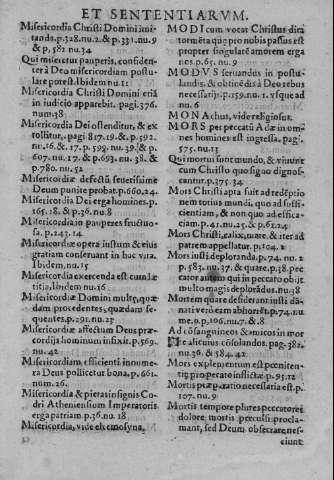 ET SENTENTIARVM.
Misericordia Christi Domini imi-
tanda.p.328.n.2.& p.331.nu.9
& p,382 nu.34
Qui miseretur pauperis, confiden-
tera Deo misericordiam postu-
lare potest.Ibidem nu 1:
Misericordia Christi Domini eriá
in iudicio apparebit. pagi.376.
num.38
Misericordia Dei ostenditur, & ex
tollitur,. pagi 817.19.& p.592.
nu.16.& 17.p. 598. nu.39.& p.
607.nu.17.& p.693. nu.38. &
p.780. nu.52
Misericordiæ defectũ seuerissime
Deum punire probat.p.660.24.
Misericordia Dei erga homines.p.
165.18. & p.36. nu.8
Misericordia in pauperes fructuo-
sa.p.243.14
Misericordiæ opera iustum & eius
gratiam conseruant in hac vita.
Ibidem, nu.15
Misericordia exercenda est cum læ
titia,Ibidem nu.16
Misericordiæ Domini multę, quæ
dam præcedentes, quædam se-
quentes.p.291.nu.27
Misericordiæ affectum Deus præ-
cordijs hominum infixit.p.569.
nu.42
Misericordiam efficienti innume-
ra Deus pollicetur bona, p.661.
num.26.
Misericordia & pietas insignis Co-
dri Atheniensium Imperatoris
erga patriam.p.36.nu.18
Misericordia, vide eleemosyna.
MODI cum vocat Christus dira
tormẽta quę pro nobis passus est
propter singularẽ amorem erga
nes.p.65. nu.9
MODVS seruandus in postu-
landis, & obtinẽdis à Deo rebus
necessarijs.p.159.nu.1. vsque ad
nu.6
MONAchus, vide religiosus.
MORS per peccatũ Adæ in om-
nes homines est ingressa. pagi.
575. nu.13
Qui mortui sunt mundo, & viuunt
cum Christo quo signo dignos-
cantur.p.375.34
Mors Christi apta fuit ad redẽptio
nem totius mundi, quo ad suffi-
cientiam, & non quo ad effica-
ciam.p.41.nu.25.& p.61.24.
Mors Christi,calix,mare, & iter ad
patrem appellatur.p.104. 2
Mors iusti deploranda.p.74. nu.2
p.583. nu.37. & quare.p.38.pec-
cator autem qui in peccato obijt
multo magis deplorãdus.nu.38
Mortem quare desiderant iusti dã-
nati verò eam abhorrẽt.p.74.nu
me.9.p.106.nu.7.& 8
Ad cõsanguineos & amicos in mor
te alicuius cõsolandos. pag.382,
nu.36. & 384.42
Mors explementum est pœniten-
tiæ pro peccato inflictæ.p.93.12
Mortis præparatio necessaria est.p.
107.nu.9
Mortis tempore plures peccatores
dolore mortis percussi procla-
mant, sed Deum obsecrare nes-
ciunt